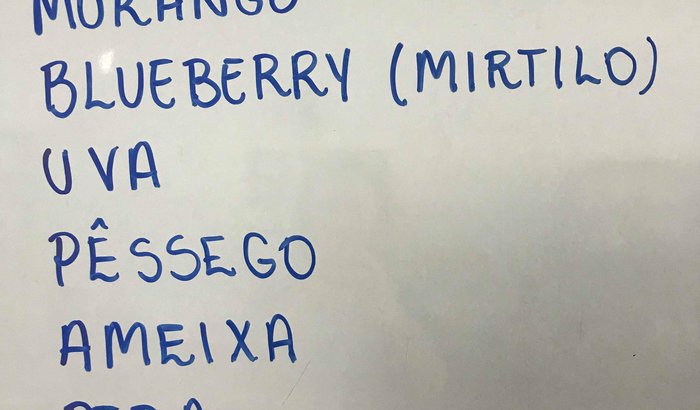 MORANGO
BLUEBERRY (MIRTILO)
UVA
PÊSSEGO
AMEIXA